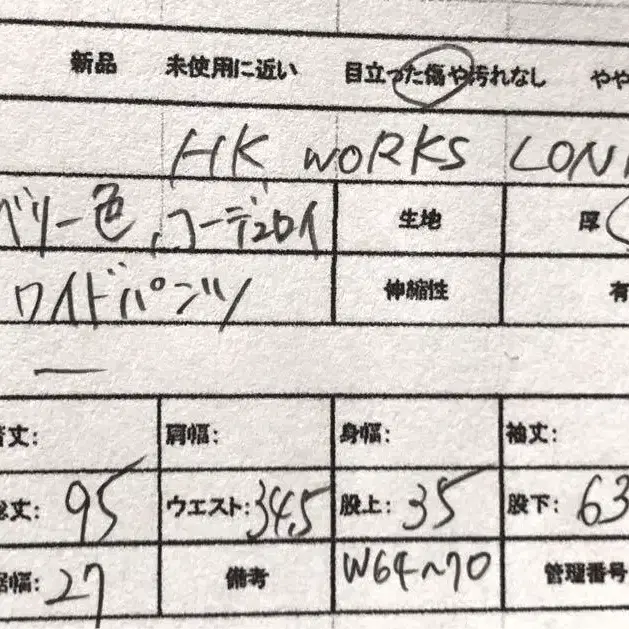 新品 未使用に近い 目立った傷や汚れなし やや
HK WORKS LON
ベリー色、コーデュロイ 生地 厚
ワイドパンツ 伸縮性 有
丈: 肩幅: 身幅: 袖丈:
総丈: 95 ウエスト: 34.5 股上: 35 股下: 63
裾幅: 27 備考 W64~70 管理番号